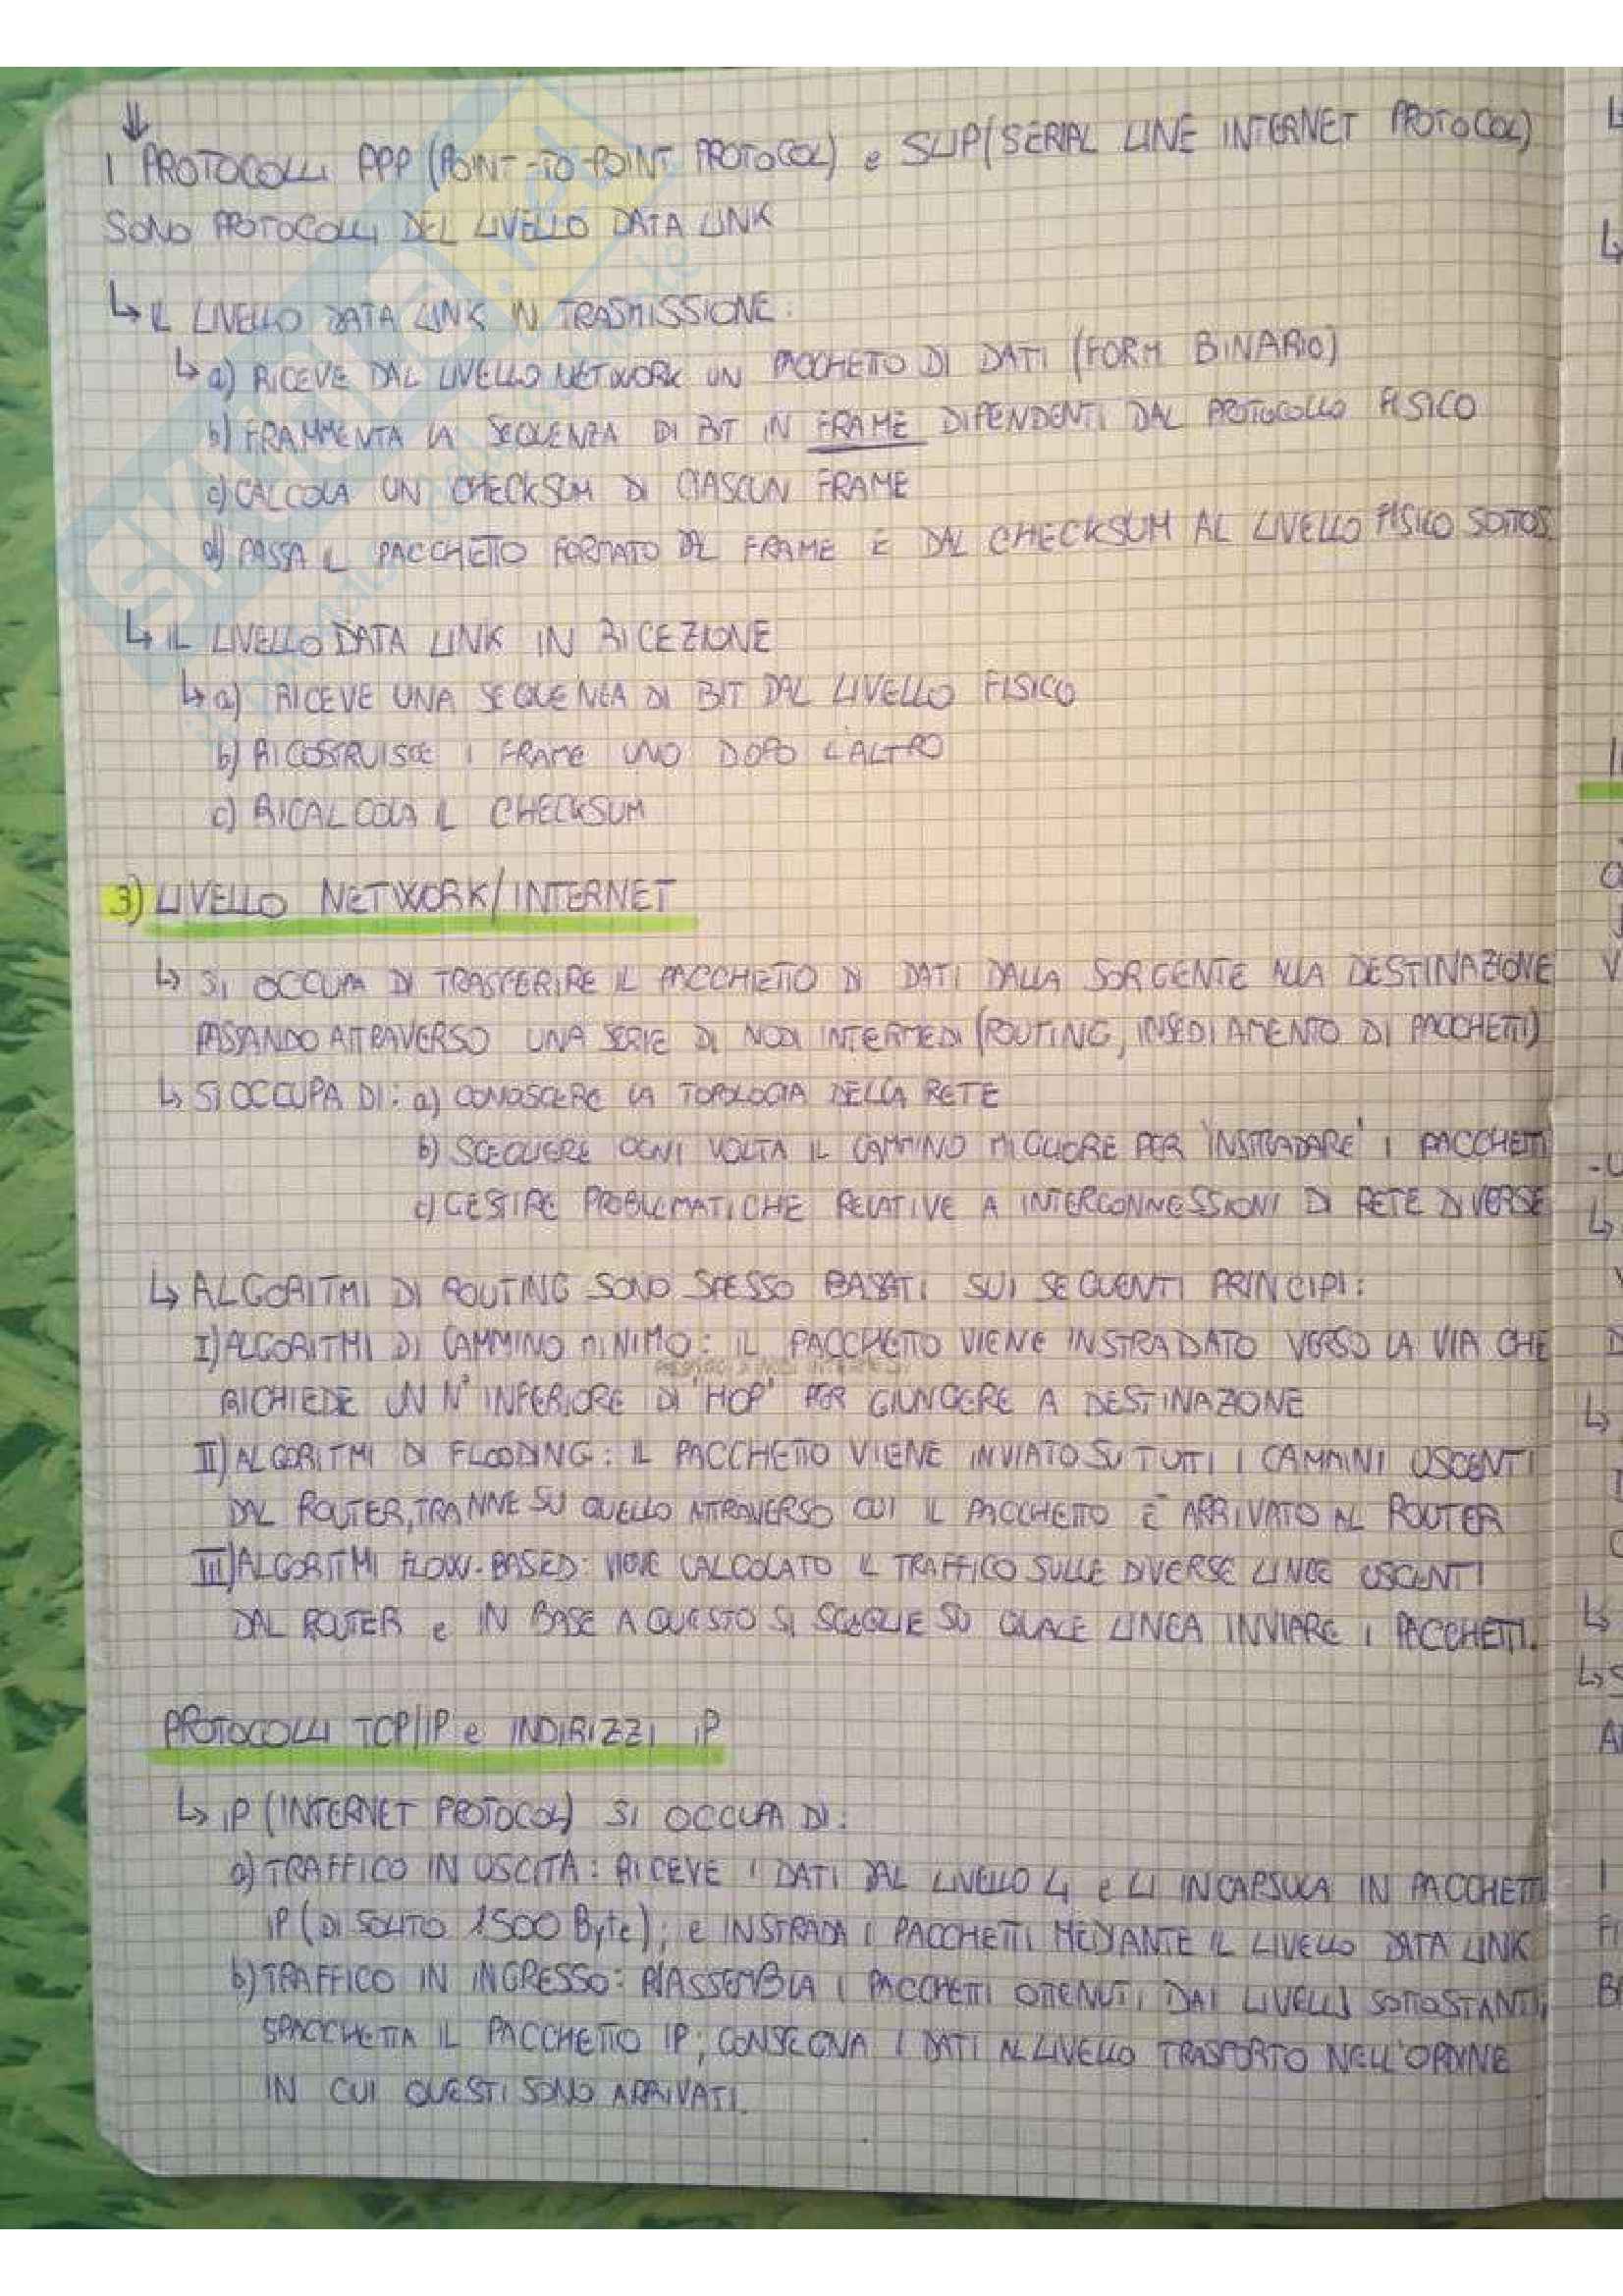 I PROTOCOLLI PPP (POINT-TO-POINT PROTOCOL) e SLIP (SERIAL LINE INTERNET PROTOCOL)
SONO PROTOCOLLI DEL LIVELLO DATA LINK
↳ IL LIVELLO DATA LINK IN TRASMISSIONE:
↳ a) RICEVE DAL LIVELLO NETWORK UN PACCHETTO DI DATI (FORM BINARIO)
b) FRAMMENTA LA SEQUENZA DI BIT IN FRAME DIPENDENTI DAL PROTOCOLLO FISICO
c) CALCOLA UN CHECKSUM DI CIASCUN FRAME
d) PASSA IL PACCHETTO FORMATO DAL FRAME E DAL CHECKSUM AL LIVELLO FISICO SOTTOS.
↳ IL LIVELLO DATA LINK IN RICEZIONE
↳ a) RICEVE UNA SEQUENZA DI BIT DAL LIVELLO FISICO
b) RICOSTRUISCE I FRAME UNO DOPO L'ALTRO
c) RICALCOLA IL CHECKSUM
3) LIVELLO NETWORK/INTERNET
↳ SI OCCUPA DI TRASFERIRE IL PACCHETTO DI DATI DALLA SORGENTE ALLA DESTINAZIONE
PASSANDO ATTRAVERSO UNA SERIE DI NODI INTERMEDI (ROUTING, INSEDIAMENTO DI PACCHETTI)
↳ SI OCCUPA DI: a) CONOSCERE LA TOPOLOGIA DELLA RETE
b) SCEGLIERE OGNI VOLTA IL CAMMINO MIGLIORE PER "INSTRADARE" I PACCHETTI
c) GESTIRE PROBLEMATICHE RELATIVE A INTERCONNESSIONI DI RETE DIVERSE
↳ ALGORITMI DI ROUTING SONO SPESSO BASATI SUI SEGUENTI PRINCIPI:
I) ALGORITMI DI CAMMINO MINIMO: IL PACCHETTO VIENE INSTRADATO VERSO LA VIA CHE
RICHIEDE UN N° INFERIORE DI "HOP" PER GIUNGERE A DESTINAZIONE
II) ALGORITMI DI FLOODING: IL PACCHETTO VIENE INVIATO SU TUTTI I CAMMINI USCENTI
DAL ROUTER, TRANNE SU QUELLO ATTRAVERSO CUI IL PACCHETTO È ARRIVATO AL ROUTER
III) ALGORITMI FLOW-BASED: VIENE CALCOLATO IL TRAFFICO SULLE DIVERSE LINEE USCENTI
DAL ROUTER e IN BASE A QUESTO SI SCEGLIE SU QUALE LINEA INVIARE I PACCHETTI.
PROTOCOLLI TCP/IP e INDIRIZZI IP
↳ IP (INTERNET PROTOCOL) SI OCCUPA DI:
a) TRAFFICO IN USCITA: RICEVE I DATI DAL LIVELLO 4 e LI INCAPSULA IN PACCHETTI
IP (DI SOLITO 1500 Byte); e INSTRADA I PACCHETTI MEDIANTE IL LIVELLO DATA LINK
b) TRAFFICO IN INGRESSO: RIASSEMBLA I PACCHETTI OTTENUTI DAI LIVELLI SOTTOSTANTI,
SPACCHETTA IL PACCHETTO IP; CONSEGNA I DATI AL LIVELLO TRASPORTO NELL'ORDINE
IN CUI QUESTI SONO ARRIVATI.